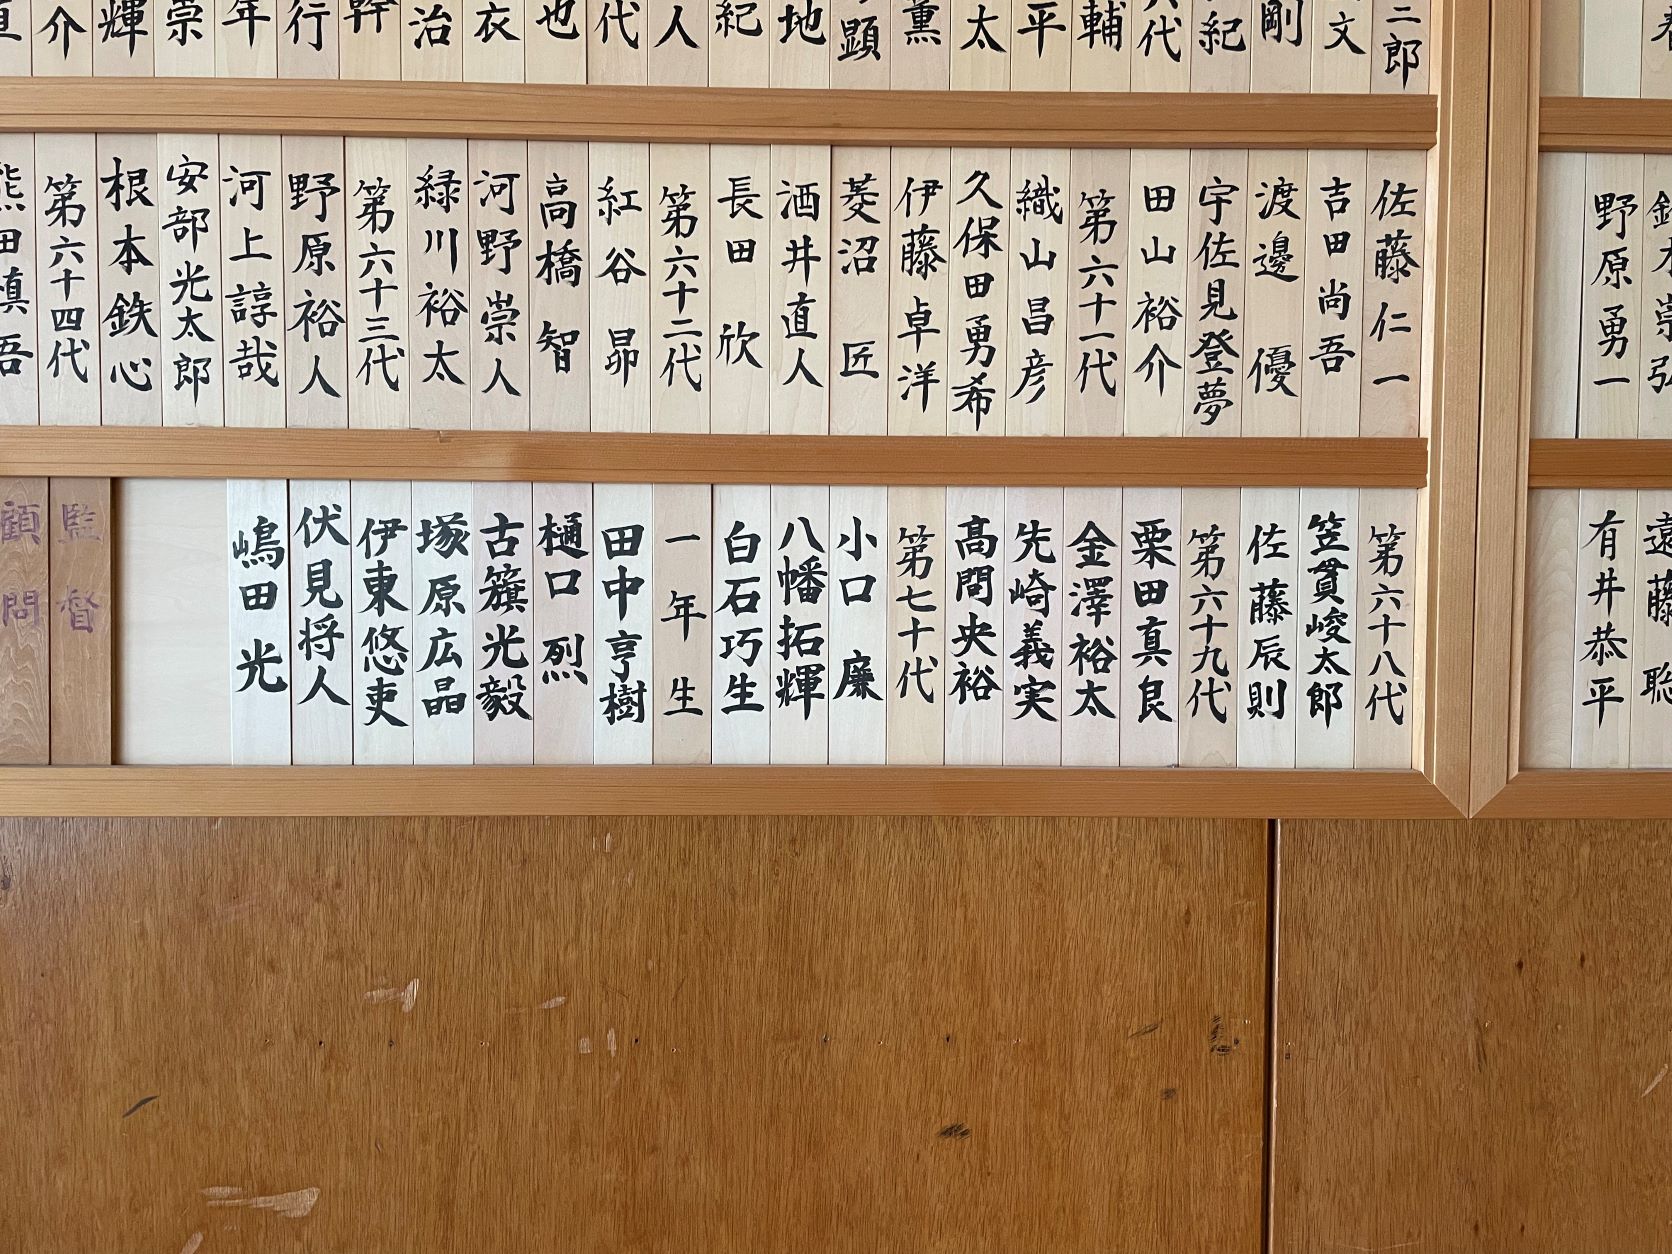 二郎
文
剛
紀
代
輔
平
太
薫
顕
地
紀
人
代
也
衣
治
幹
行
年
崇
輝
介
直
佐藤仁一
吉田尚吾
渡邊優
宇佐見登夢
田山裕介
第六十一代
織山昌彦
久保田勇希
伊藤卓洋
菱沼匠
酒井直人
長田欣
第六十二代
紅谷昴
高橋智
河野崇人
緑川裕太
第六十三代
野原裕人
河上諄哉
安部光太郎
根本鉄心
第六十四代
熊田慎吾
第六十八代
笠貫峻太郎
佐藤辰則
第六十九代
栗田真良
金澤裕太
先崎義実
髙問央裕
第七十代
小口廉
八幡拓輝
白石巧生
一年生
田中亨樹
樋口烈
古籏光毅
塚原広晶
伊東悠吏
伏見将人
嶋田光
監督
顧問
野原勇一
遠藤聡
有井恭平